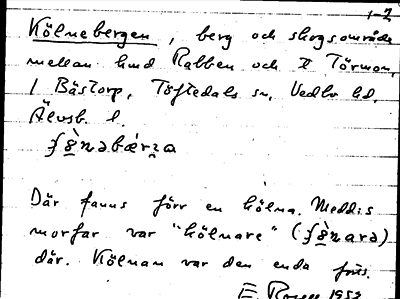 1-2
Kölnebergen, berg och skogsområde
mellan lund Rabben och Törmon,
i Båstorp, Töftedals sn, Vedbo hd,
Älvsb. l.
Där fanns förr en kölna. Medd:s
morfar var "kölnare" (
där. Kölnan var den enda
E. Rosén 1953